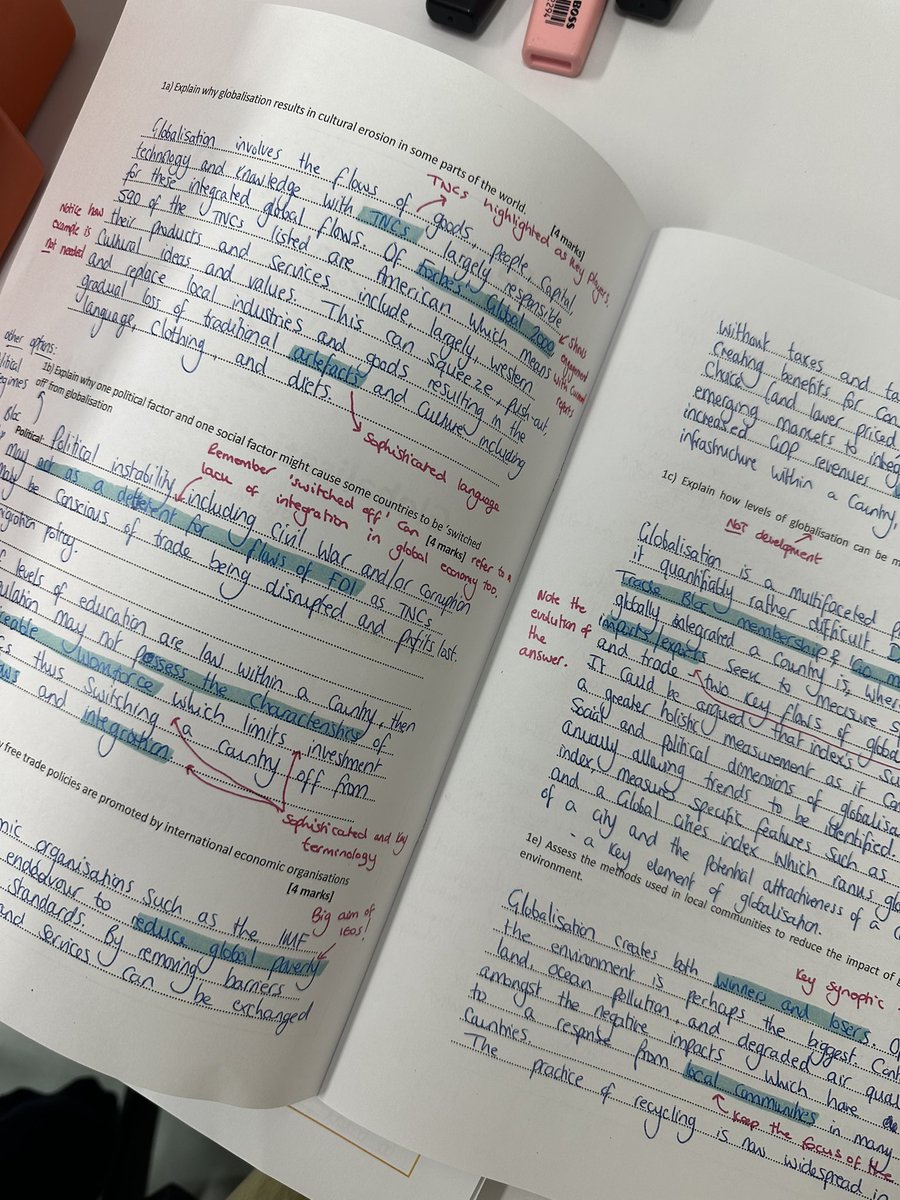 BOSS
1a) Explain why globalisation results in cultural erosion in some parts of the world.
[4 marks]
Globalisation involves the flows of goods, people, capital,
technology and knowledge with TNCs largely responsible
for these integrated global flows. Of Forbes' Global 2000,
590 of the TNCs listed are American which means
their products and services include, largely, western
cultural ideas and values. This can squeeze, push out,
and replace local industries and goods resulting in the
gradual loss of traditional artefacts and culture including
language, clothing, and diets.
TNCs highlighted as key players.
Notice how
example is
not needed
Shows
engagement
with current
reports
Sophisticated language
other options:
1b) Explain why one political factor and one social factor might cause some countries to be 'switched
off' from globalisation
[4 marks]
Bloc
Political:
Political instability including civil war and/or corruption
may act as a deterrent for flows of FDI as TNCs
may be conscious of trade being disrupted and profits lost.
Remember 'switched off' can refer to a
lack of integration in global economy too.
policy.
levels of education are low within a country, then
may not possess the characteristics of
workforce which limits investment
thus switching a country off from
and integration
Sophisticated and key
terminology
free trade policies are promoted by international economic organisations
[4 marks]
organisations such as the IMF
endeavour to reduce global poverty
standards. By removing barriers
and services can be exchanged
Big aim of
IEOs!
Without taxes and
Creating benefits for
choice (and lower priced
emerging markets to
increased GDP revenues
infrastructure within a country,
1c) Explain how levels of globalisation can be
Not development
Globalisation is a multifaceted
it quantifiably rather difficult.
Trade Bloc membership &
globally integrated a country is, where
imports/exports seek to measure
and trade - two key flows of
It could be argued that index's
a greater holistic measurement as it
Social and political dimensions of
anually allowing trends to be identified.
index, measures specific features such as
and a Global cities index which ranks
of a city and the potential attractiveness of a
- a key element of globalisation.
Note the
evolution of
the
answer.
1e) Assess the methods used in local communities to reduce the impact of
environment.
Globalisation creates both winners and losers.
the environment is perhaps the biggest.
land, ocean pollution, and degraded air
amongst the negative impacts which have
to a response from local communities in many
Countries.
The practice of recycling is now widespread in
Key synoptic
Keep the focus of the